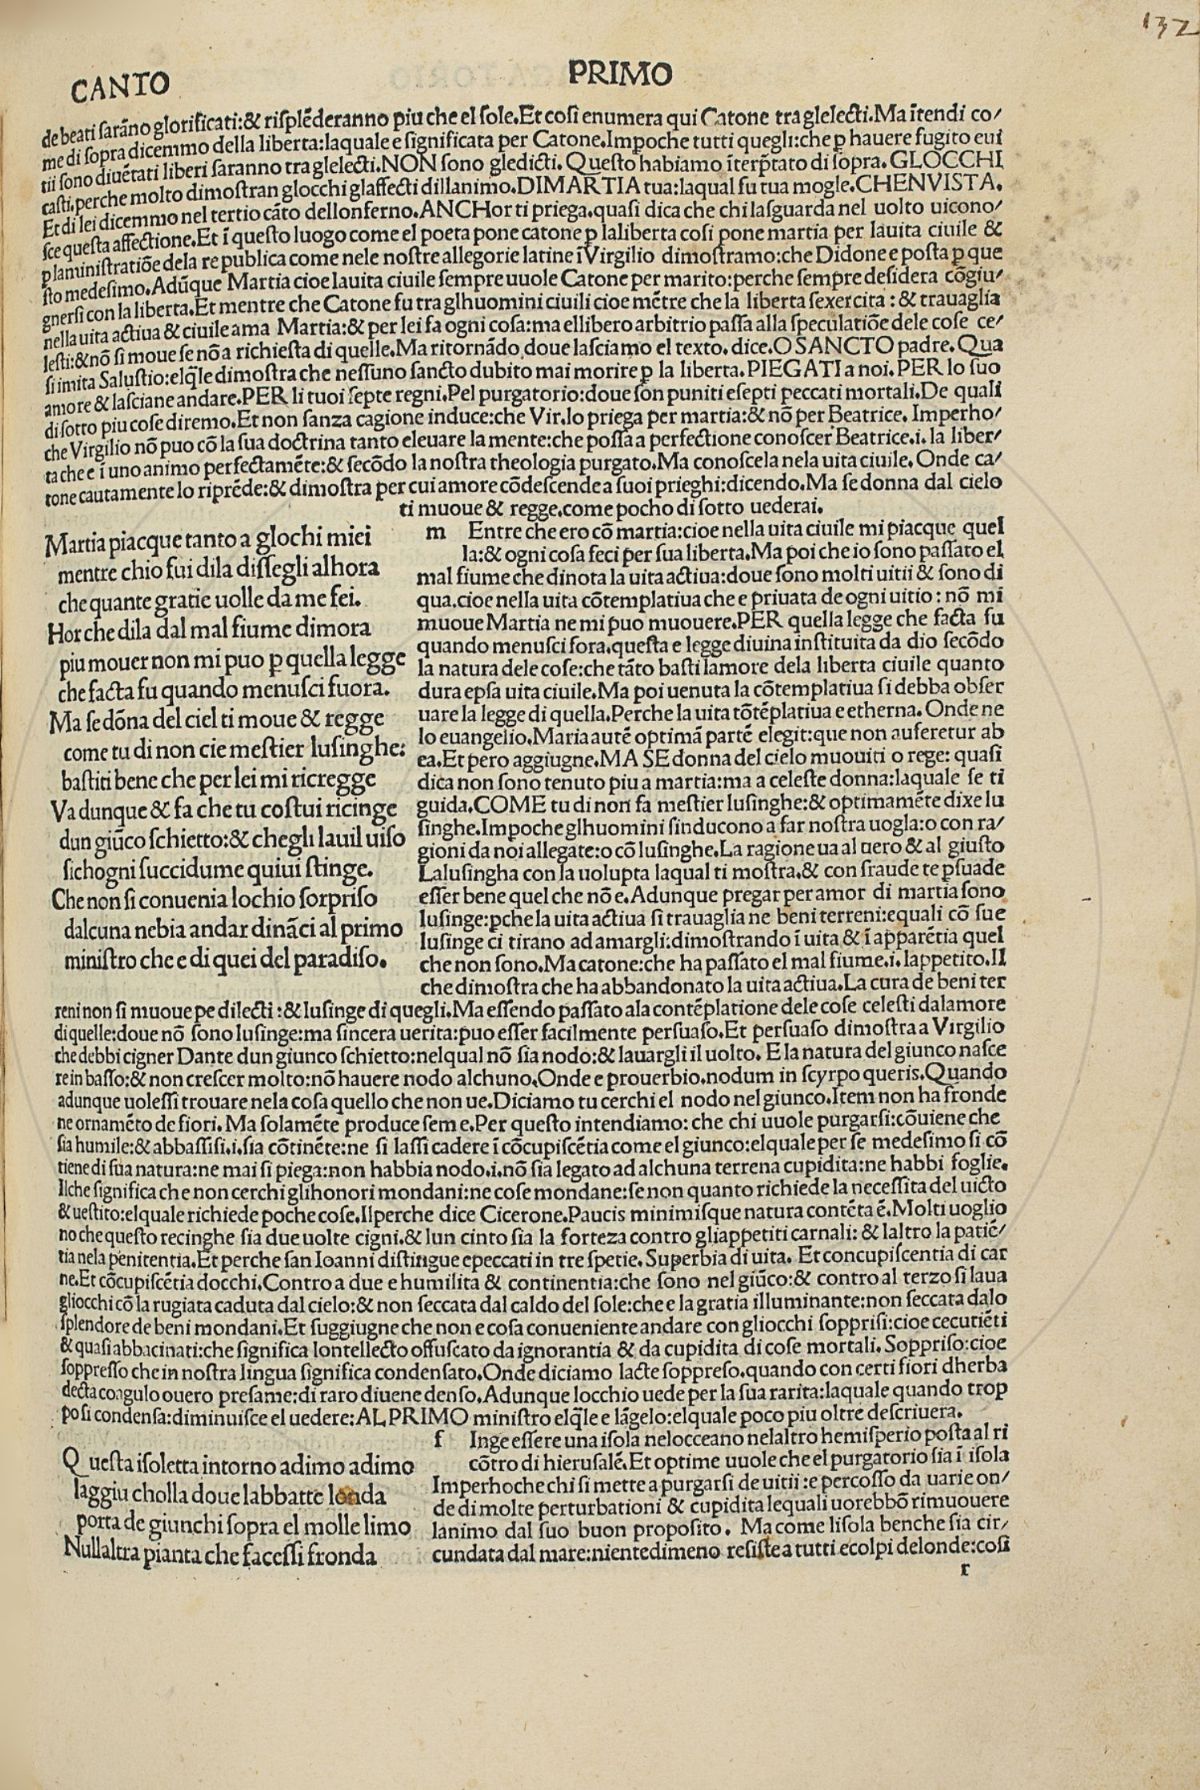 132
CANTO PRIMO
de beati sarãno glorificati:& risplẽderanno piu che el sole. Et cosi enumera qui Catone tra glelecti. Ma ĩtendi co/
me di sopra dicemmo della liberta:laquale e significata per Catone. Impoche tutti quegli:che ꝑ hauere fugito eui
tii sono diuẽtati liberi saranno tra glelecti. NON sono gledicti. Questo habiamo ĩterp̃tato di sopra. GLOCCHI
casti. perche molto dimostran glocchi glaffecti dillanimo. DI MARTIA tua:laqual fu tua mogle. CHENVISTA.
Et di lei dicemmo nel tertio cãto dellonferno. ANCHor ti priega. quasi dica che chi lasguarda nel uolto uicono/
sce questa affectione. Et ĩ questo luogo come el poeta pone catone ꝑ laliberta cosi pone martia per lauita ciuile &
ꝑ laministratiõe dela re publica come nele nostre allegorie latine ĩ Virgilio dimostramo:che Didone e posta ꝑ que
sto medesimo. Adũque Martia cioe lauita ciuile sempre uuole Catone per marito:perche sempre desidera cõgiu/
gnersi con la liberta. Et mentre che Catone fu tra glhuomini ciuili cioe mẽtre che la liberta sexercita : & trauaglia
nella uita actiua & ciuile ama Martia:& per lei fa ogni cosa:ma ellibero arbitrio passa alla speculatiõe dele cose ce/
lesti:& nõ si moue se nõ a richiesta di quelle. Ma ritornãdo doue lasciamo el texto. dice. O SANCTO padre. Qua
si imita Salustio:elq̃le dimostra che nessuno sancto dubito mai morire ꝑ la liberta. PIEGATI a noi. PER lo suo
amore & lasciane andare. PER li tuoi septe regni. Pel purgatorio:doue son puniti esepti peccati mortali. De quali
di sotto piu cose diremo. Et non sanza cagione induce:che Vir. lo priega per martia:& nõ per Beatrice. Imperho/
che Virgilio nõ puo cõ la sua doctrina tanto eleuare la mente:che possa a perfectione conoscer Beatrice.i. la liber/
ta che e ĩ uno animo perfectamẽte:& secõdo la nostra theologia purgato. Ma conoscela nela uita ciuile. Onde ca/
tone cautamente lo riprẽde:& dimostra per cui amore cõdescende a suoi prieghi:dicendo. Ma se donna dal cielo
ti muoue & regge. come pocho di sotto uederai.
Martia piacque tanto a glochi miei
mentre chio fui dila dissegli alhora
che quante gratie uolle da me fei.
Hor che dila dal mal fiume dimora
piu mouer non mi puo ꝑ quella legge
che facta fu quando menusci fuora.
Ma se dõna del ciel ti moue & regge
come tu di non cie mestier lusinghe:
bastiti bene che per lei mi ricregge
Va dunque & fa che tu costui ricinge
dun giũco schietto:& chegli lauil uiso
sichogni succidume quiui stinge.
Che non si conuenia lochio sorpriso
dalcuna nebia andar dinãci al primo
ministro che e di quei del paradiso.
m Entre che ero cõ martia:cioe nella uita ciuile mi piacque quel
la:& ogni cosa feci per sua liberta. Ma poi che io sono passato el
mal fiume che dinota la uita actiua:doue sono molti uitii & sono di
qua. cioe nella uita cõtemplatiua che e priuata de ogni uitio : nõ mi
muoue Martia ne mi puo muouere. PER quella legge che facta fu
quando menusci fora. questa e legge diuina instituita da dio secõdo
la natura dele cose:che tãto basti lamore dela liberta ciuile quanto
dura epsa uita ciuile. Ma poi uenuta la cõtemplatiua si debba obser
uare la legge di quella. Perche la uita tõtẽplatiua e etherna. Onde ne
lo euangelio. Maria autẽ optimã partẽ elegit:que non auferetur ab
ea. Et pero aggiugne. MA SE donna del cielo muouiti o rege: quasi
dica non sono tenuto piu a martia:ma a celeste donna:laquale se ti
guida. COME tu di non fa mestier lusinghe:& optimamẽte dixe lu
singhe. Impoche glhuomini sinducono a far nostra uogla:o con ra/
gioni da noi allegate:o cõ lusinghe. La ragione ua al uero & al giusto
Lalusingha con la uolupta laqual ti mostra. & con fraude te ꝑsuade
esser bene quel che nõ e. Adunque pregar per amor di martia sono
lusinge:ꝑche la uita actiua si trauaglia ne beni terreni:equali cõ sue
lusinge ci tirano ad amargli:dimostrando ĩ uita & ĩ apparẽtia quel
che non sono. Ma catone:che ha passato el mal fiume.i. lappetito. Il
che dimostra che ha abbandonato la uita actiua. La cura de beni ter
reni non si muoue pe dilecti : & lusinge di quegli. Ma essendo passato ala contẽplatione dele cose celesti dalamore
di quelle:doue nõ sono lusinge:ma sincera uerita:puo esser facilmente persuaso. Et persuaso dimostra a Virgilio
che debbi cigner Dante dun giunco schietto:nelqual nõ sia nodo:& lauargli il uolto. E la natura del giunco nasce
re in basso:& non crescer molto:nõ hauere nodo alchuno. Onde e prouerbio. nodum in scyrpo queris. Quando
adunque uolessi trouare nela cosa quello che non ue. Diciamo tu cerchi el nodo nel giunco. Item non ha fronde
ne ornamẽto de fiori. Ma solamẽte produce seme. Per questo intendiamo: che chi uuole purgarsi:cõuiene che
sia humile:& abbassisi.i. sia cõtinẽte:ne si lassi cadere ĩ cõcupiscẽtia come el giunco:elquale per se medesimo si cõ
tiene di sua natura:ne mai si piega:non habbia nodo.i. nõ sia legato ad alchuna terrena cupidita:ne habbi foglie.
Ilche significa che non cerchi glihonori mondani:ne cose mondane:se non quanto richiede la necessita del uicto
& uestito:elquale richiede poche cose. Ilperche dice Cicerone. Paucis minimisque natura contẽta ẽ. Molti uoglio
no che questo recinghe sia due uolte cigni. & lun cinto sia la forteza contro gliappetiti carnali: & laltro la patiẽ/
tia nela penitentia. Et perche san Ioanni distingue epeccati in tre spetie. Superbia di uita. Et concupiscentia di car
ne. Et cõcupiscẽtia docchi. Contro a due e humilita & continentia:che sono nel giũco:& contro al terzo si laua
gliocchi cõ la rugiata caduta dal cielo:& non seccata dal caldo del sole:che e la gratia illuminante:non seccata dalo
splendore de beni mondani. Et suggiugne che non e cosa conueniente andare con gliocchi sopprisi:cioe cecutiẽti
& quasi abbacinati:che significa lontellecto offuscato da ignorantia & da cupidita di cose mortali. Sopriso:cioe
soppresso che in nostra lingua significa condensato. Onde diciamo lacte soppreso. quando con certi fiori dherba
decta coagulo ouero presame:di raro diuene denso. Adunque locchio uede per la sua rarita:laquale quando trop
po si condensa:diminuisce el uedere:AL PRIMO ministro elq̃le e lãgelo:elquale poco piu oltre descriuera.
Questa isoletta intorno adimo adimo
laggiu cholla doue labbatte londa
porta de giunchi sopra el molle limo
Nullaltra pianta che facessi fronda
f Inge essere una isola nelocceano nelaltro hemisperio posta al ri
cõtro di hierusalẽ. Et optime uuole che el purgatorio sia ĩ isola
Imperhoche chi si mette a purgarsi de uitii : e percosso da uarie on/
de di molte perturbationi & cupidita lequali uorebbõ rimuouere
lanimo dal suo buon proposito. Ma come lisola benche sia cir/
cundata dal mare:nientedimeno resiste a tutti ecolpi delonde:cosi
r